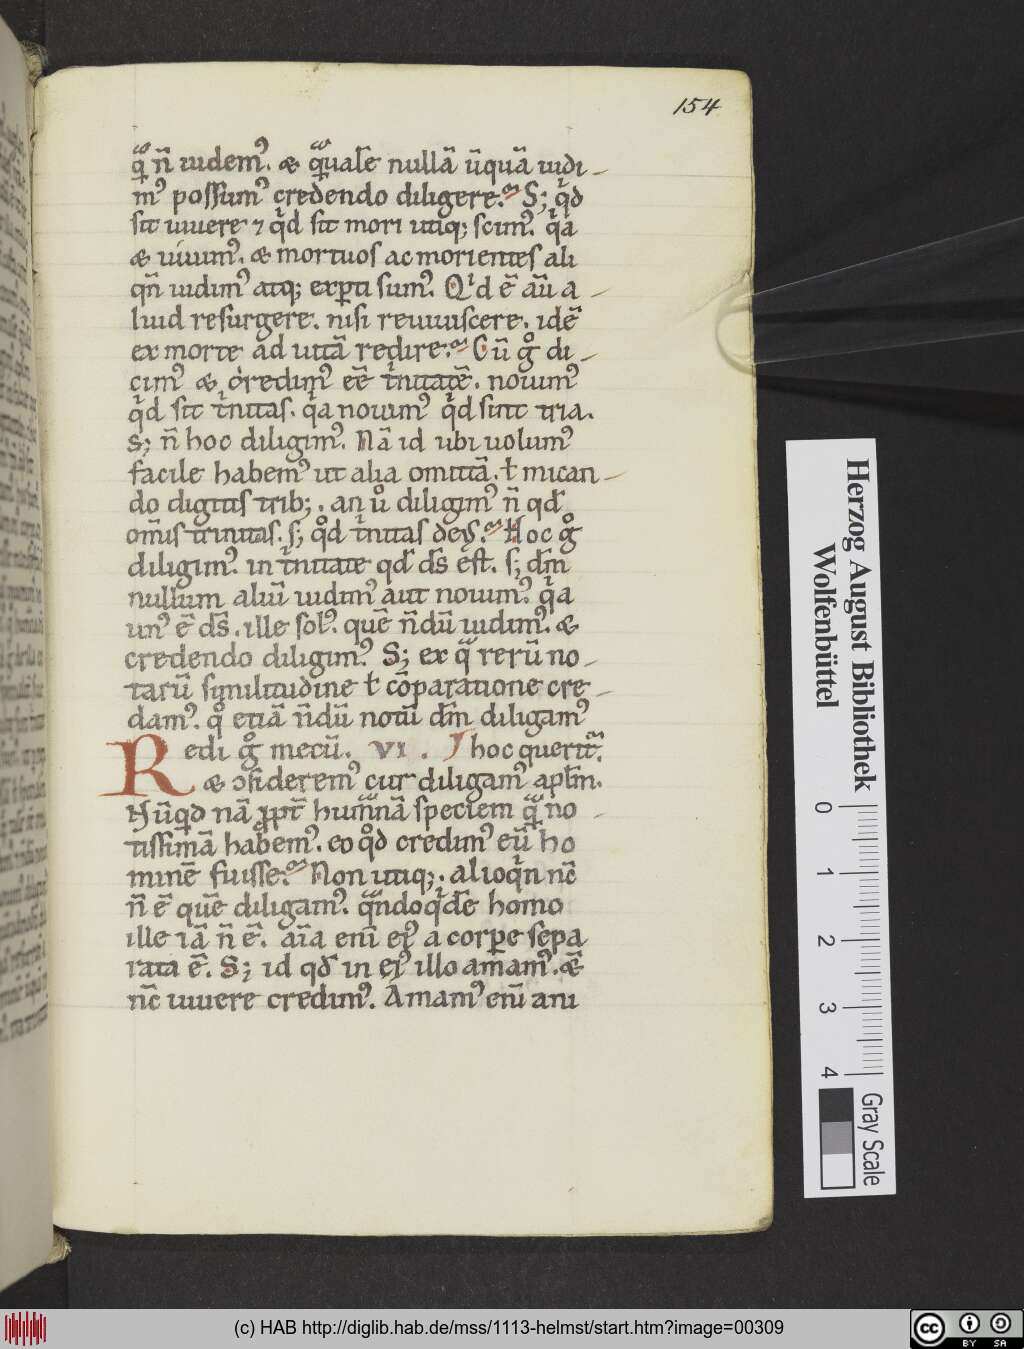 154
q̃ ñ uidem᷒. & q̃uale᷒ nullā ūquā uidi-
m᷒ possum᷒ credendo diligere. S; qd
sit uiuere ⁊ qd sit mori utiq; scim᷒. qa
& uiuim᷒. & mortuos ac morientes ali
qñ uidim᷒ atq; exꝑti sum᷒. Qid ē aū a-
liud resurgere. nisi reuiuiscere. idē
ex morte ad uitā redire. Cū gͦ di-
cim᷒ & credim᷒ eē tnitatē. nouim᷒
qd sit tnitas. qa nouim᷒ qd sint tria.
S; ñ hoc diligim᷒. Nā id ubi uolum᷒
facile habem᷒ ut alia omittā. ł mican-
do digitis trib;. an uͦ diligim᷒ ñ qd
om̄is trinitas. s; qd tnitas deꝰ. Hoc gͦ
diligim᷒. in tnitate qd d̄s est. s; dm̄
nullum aliū uidim᷒ aut nouim᷒. qa
un᷒ ē d̄s. ille sol᷒. quē ñdū uidim᷒. &
credendo diligim᷒. S; ex q̃ rerū no-
tarū similitudine ł cōparatione cre-
dam᷒. qͦ etiā ñdū notū dm̄ diligam᷒
Redi gͦ mecū. VI. J hoc querit᷒.
& ↄsiderem᷒ cur diligam᷒ apłm.
Nūqd nā ꝓpt̄ humanā speciem q̃ no-
tissimā habem᷒. eo qd credim᷒ eū ho
minē fuisse. Non utiq;. alioqñ nc̄
ñ ē quē diligam᷒. qndoqdē homo
ille iā ñ ē. aīa enī ei᷒ a corꝑe sepa
rata ē. S; id qd in ei᷒ illo amam᷒. &
nc̄ uiuere credim᷒. Amam᷒ enī ani
Herzog August Bibliothek
Wolfenbüttel
0 1 2 3 4
Gray Scale
(c) HAB http://diglib.hab.de/mss/1113-helmst/start.htm?image=00309
cc BY SA